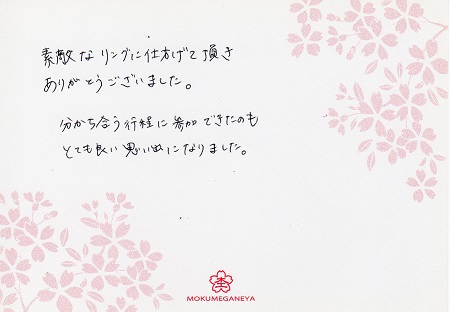 素敵なリングに仕上げて頂き
ありがとうございました。
分かち合う行程に参加できたのも
とても良い思い出になりました。
MOKUMEGANEYA